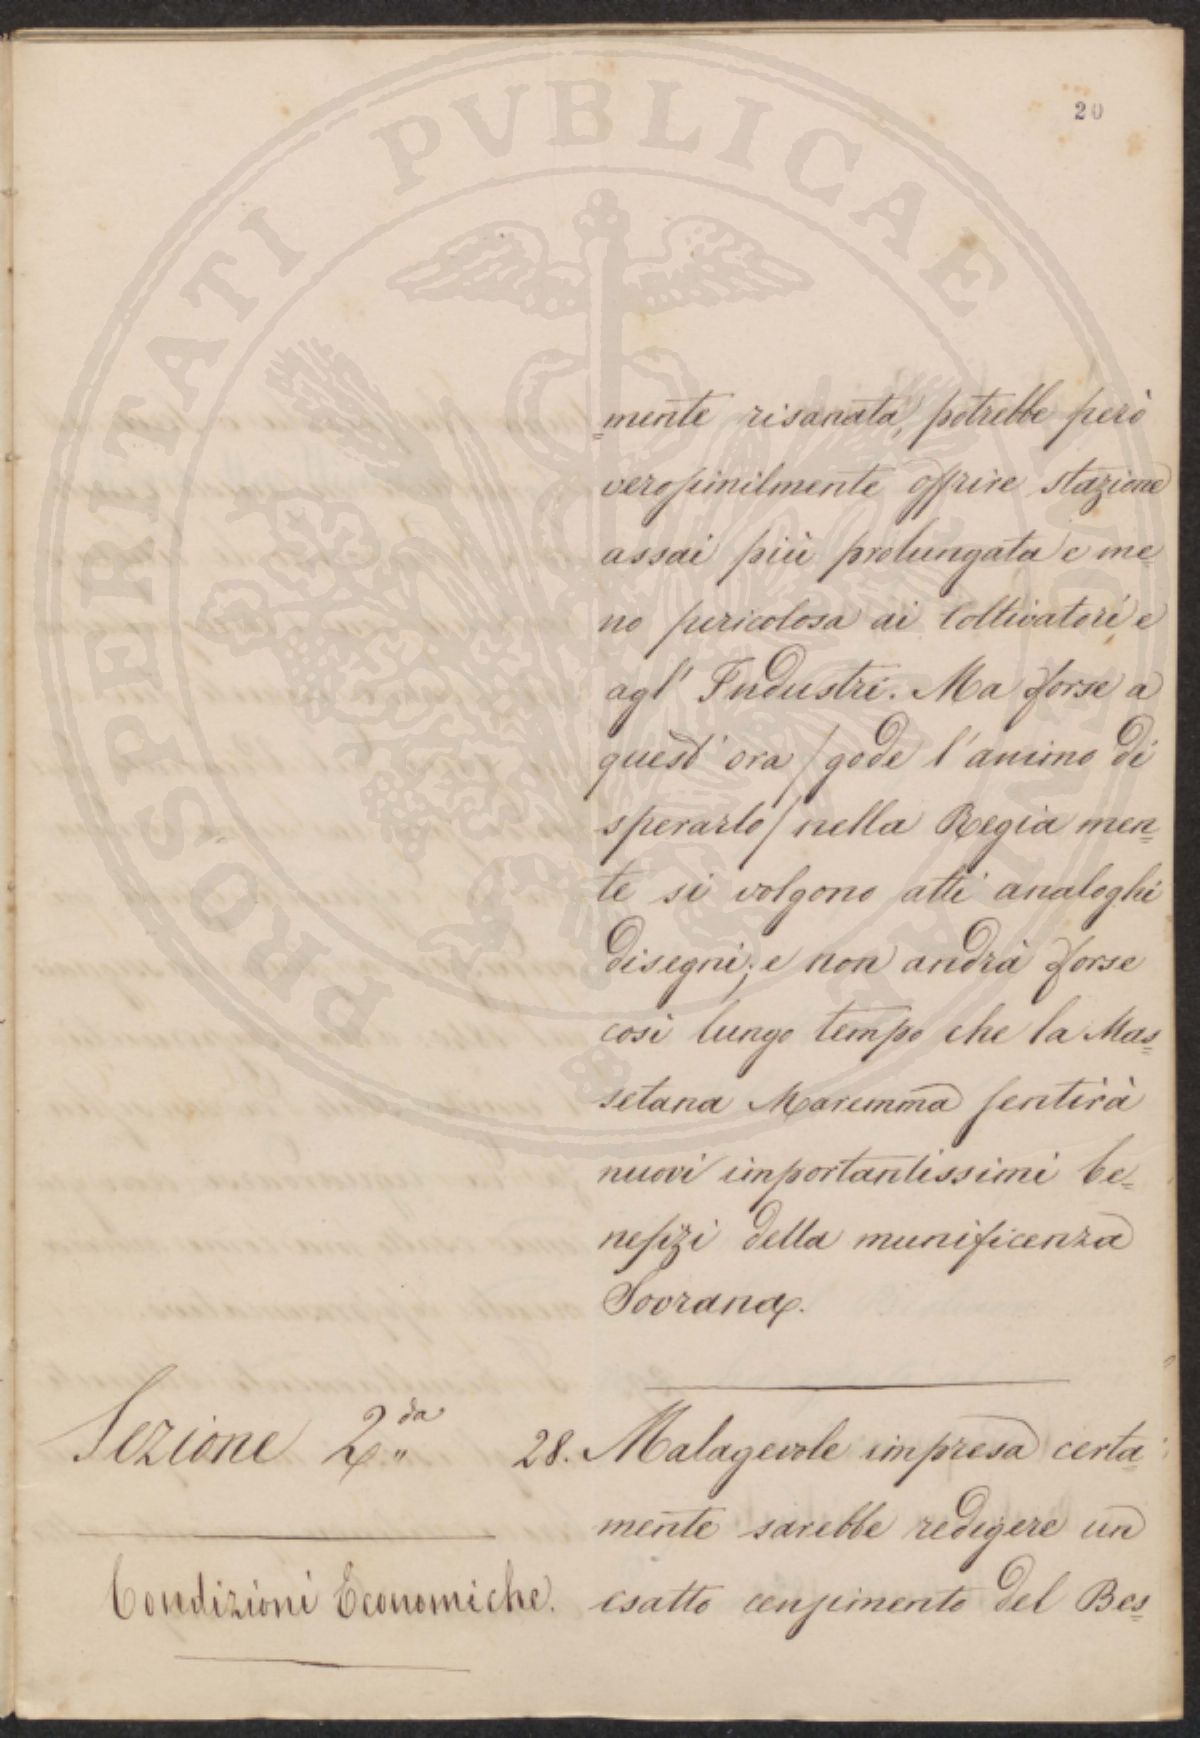 20
PROSPERITATI PVBLICAE
=mente risanata, potrebbe però
verosimilmente offrire stazione
assai più prolungata e me=
no pericolosa ai Coltivatori e
agl' Industri. Ma forse a
quest' ora / gode l'animo di
sperarlo / nella Regia men=
te si volgono atti analoghi
disegni; e non andrà forse
così lungo tempo che la Mas=
setana Maremma sentirà
nuovi importantissimi be=
nefizi della munificenza
Sovrana.
Sezione 2.da
28. Malagevole impresa certa=
mente sarebbe redigere un
Condizioni Economiche.
esatto censimento del Bes=